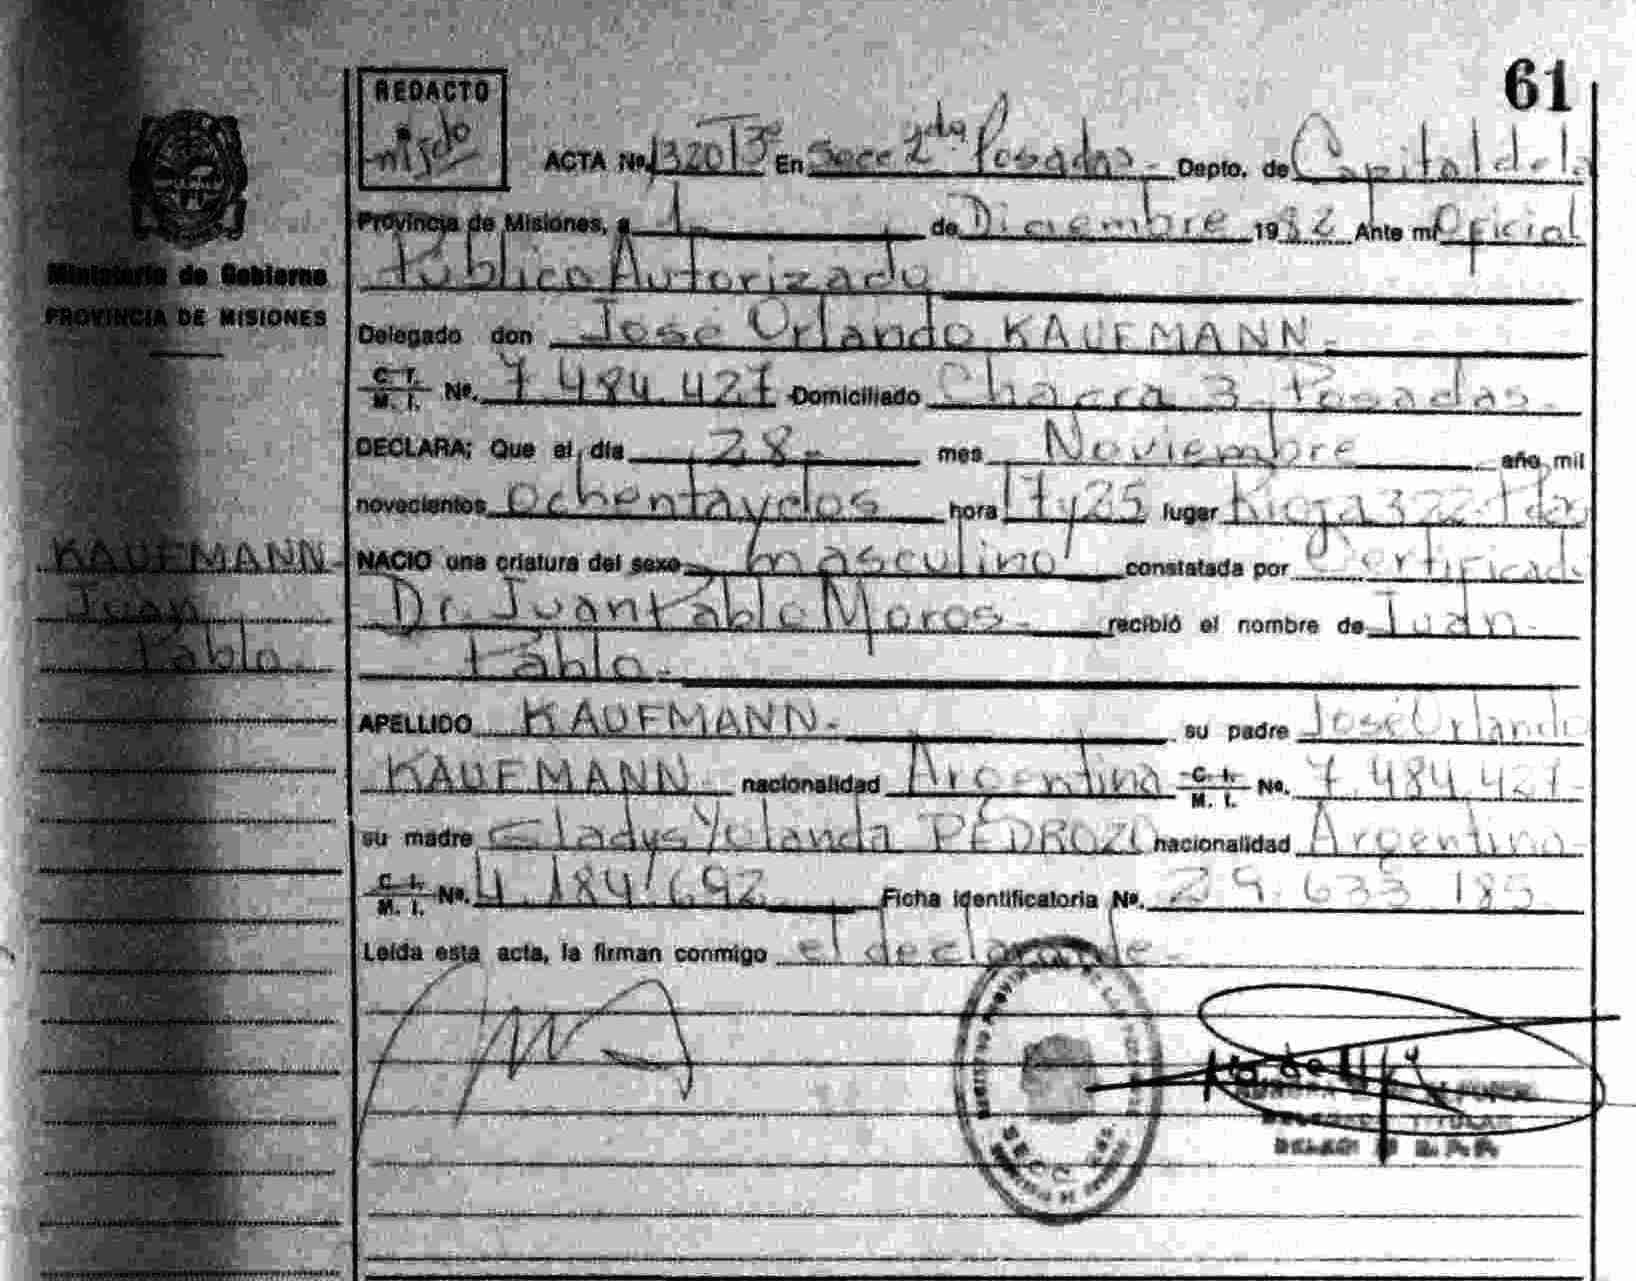 61
REDACTO
ACTA No. 1320 T3º En Secc 2da Posadas - Depto. de Capital de la
Provincia de Misiones, a 1 de Diciembre 1982 Ante mi Oficial
Público Autorizado
Ministerio de Gobierno
PROVINCIA DE MISIONES
Delegado don José Orlando KAUFMANN.-
C. I. M. I. Nº. 7.484.427 Domiciliado Chacra 3 - Posadas -
DECLARA; Que el día 28 - mes Noviembre año mil
novecientos ochenta y dos hora 17 y 25 lugar Rioja 322 - Pdas
NACIO una criatura del sexo masculino constatada por Certificado
Dr. Juan Pablo Moros - recibió el nombre de Juan -
Pablo.-
KAUFMANN -
Juan
Pablo.-
APELLIDO KAUFMANN.- su padre José Orlando
KAUFMANN - nacionalidad Argentina C. I. M. I. Nº. 7.484.427-
su madre Gladys Yolanda PEDROZO nacionalidad Argentina-
C. I. M. I. Nº. 4.184.692 Ficha identificatoria Nº. 29.633 185
Leída esta acta, la firman conmigo el declarante -
SECC.